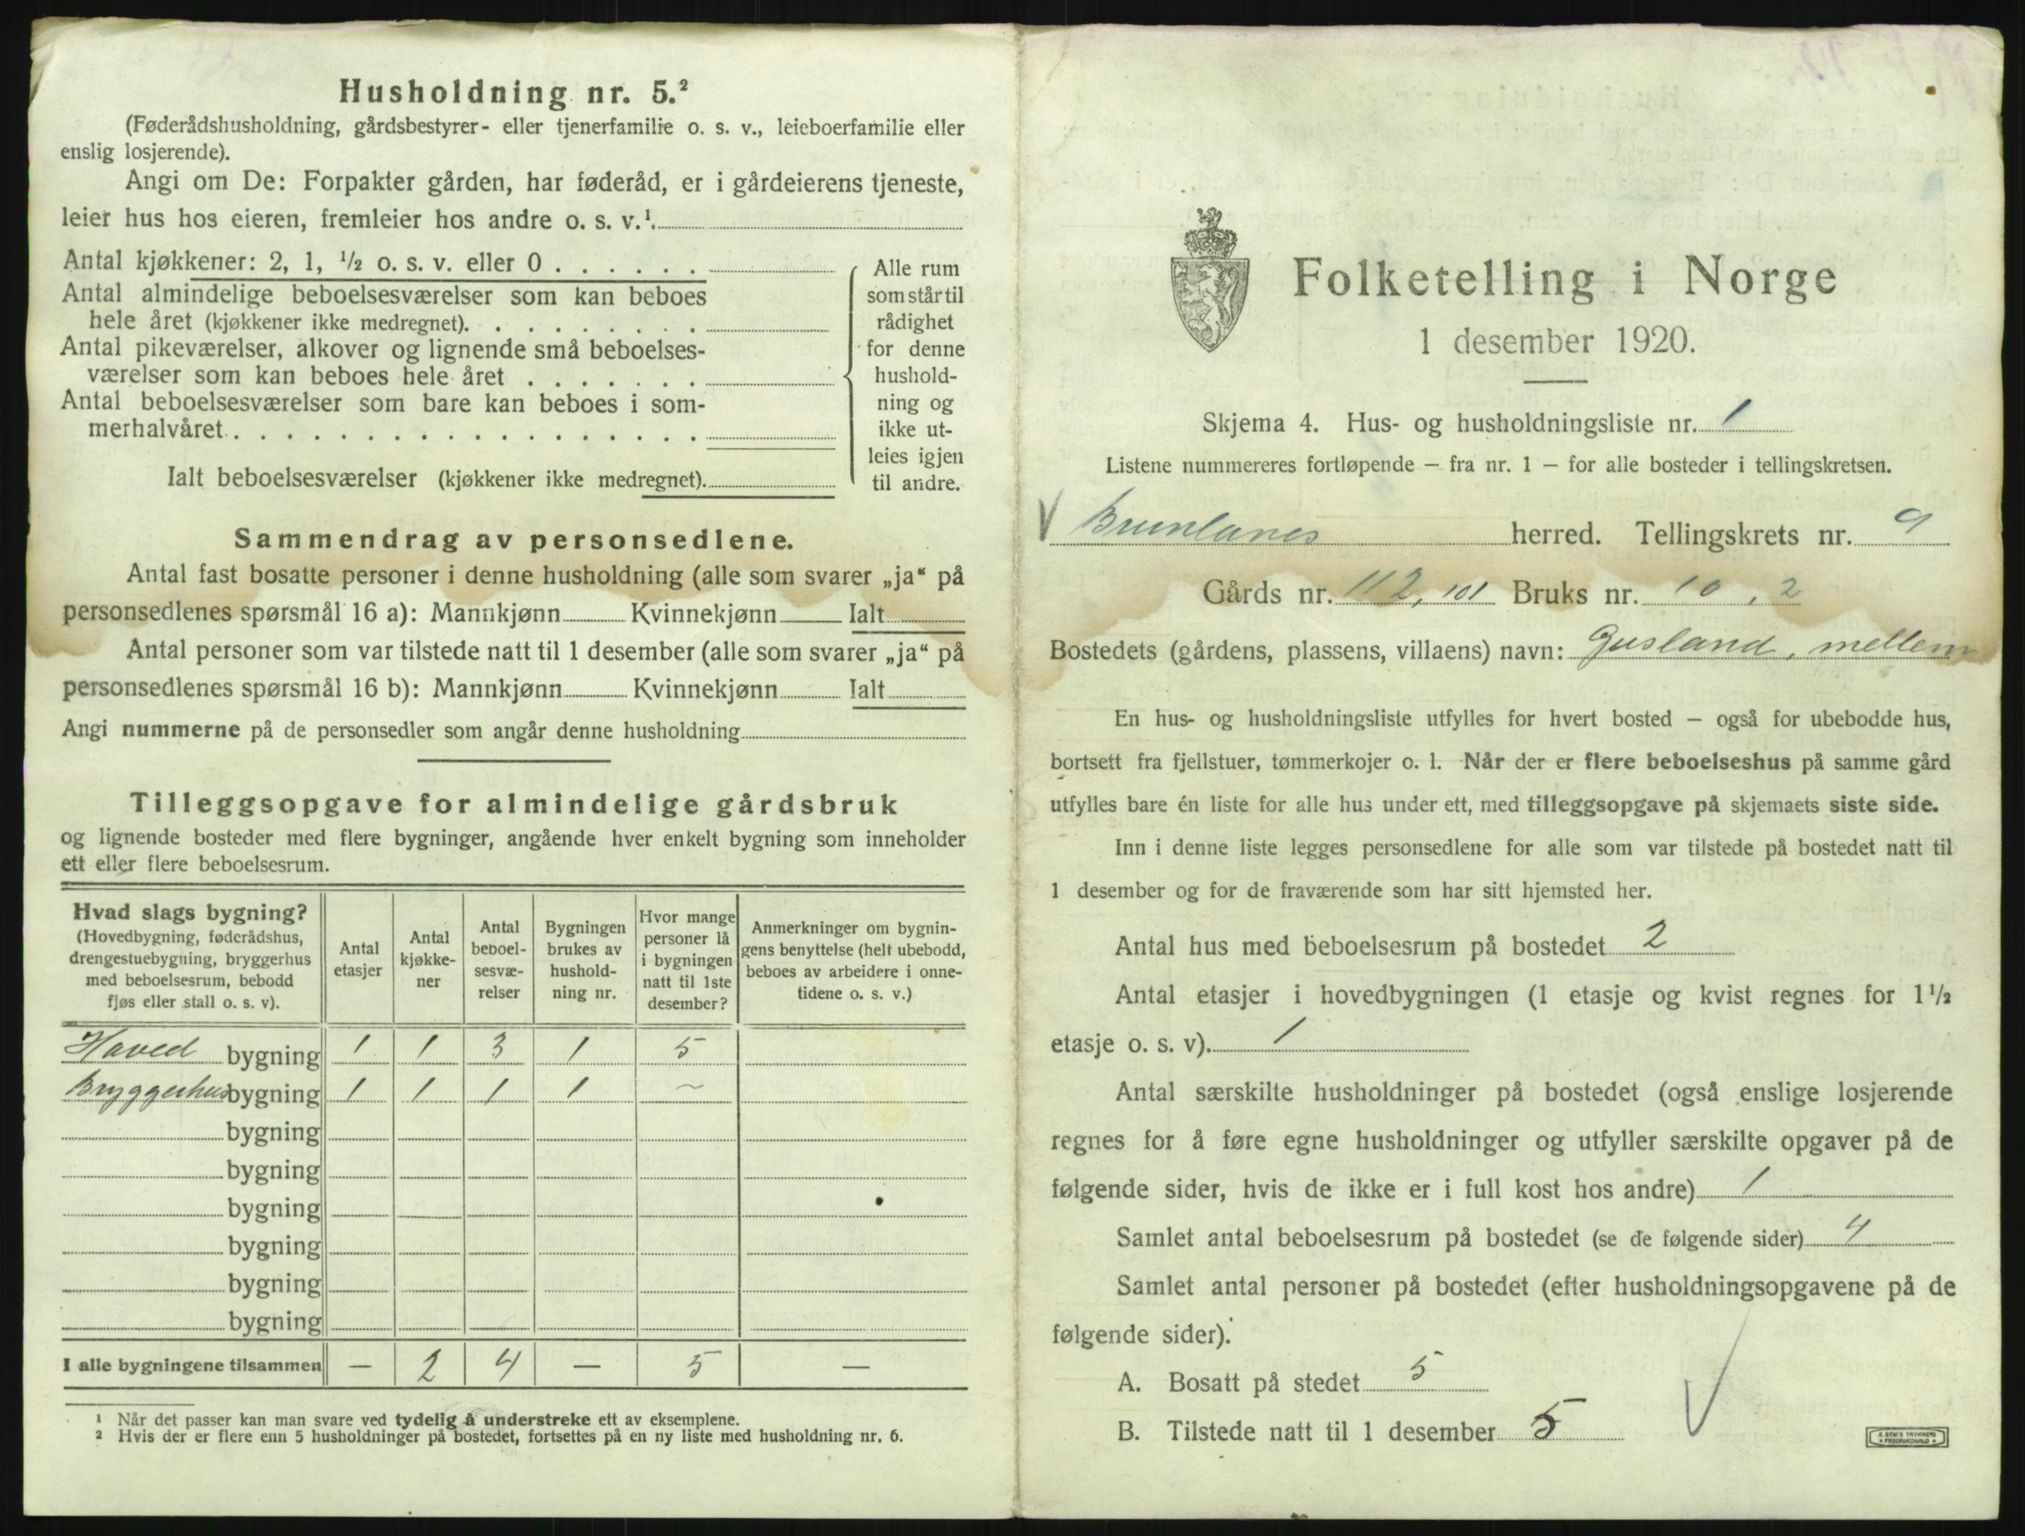 Husholdning nr. 5.²
(Føderådshusholdning, gårdsbestyrer- eller tjenerfamilie o. s. v., leieboerfamilie eller
enslig losjerende).
Angi om De: Forpakter gården, har føderåd, er i gårdeierens tjeneste,
leier hus hos eieren, fremleier hos andre o. s. v.¹.
Antal kjøkkener: 2, 1, ½ o. s. v. eller 0 . . . . . .
Antal almindelige beboelsesværelser som kan beboes
hele året (kjøkkener ikke medregnet). . . . . . . . .
Antal pikeværelser, alkover og lignende små beboelses-
værelser som kan beboes hele året . . . . . . .
Antal beboelsesværelser som bare kan beboes i som-
merhalvåret. . . . . . . . . . . . . . . . . . .
Ialt beboelsesværelser (kjøkkener ikke medregnet).
Alle rum
som står til
rådighet
for denne
hushold-
ning og
ikke ut-
leies igjen
til andre.
Sammendrag av personsedlene.
Antal fast bosatte personer i denne husholdning (alle som svarer „ja“ på
personsedlenes spørsmål 16 a): Mannkjønn Kvinnekjønn Ialt
Antal personer som var tilstede natt til 1 desember (alle som svarer „ja“ på
personsedlenes spørsmål 16 b): Mannkjønn Kvinnekjønn Ialt
Angi nummerne på de personsedler som angår denne husholdning
Tilleggsopgave for almindelige gårdsbruk
og lignende bosteder med flere bygninger, angående hver enkelt bygning som inneholder
ett eller flere beboelsesrum.
Hvad slags bygning?
(Hovedbygning, føderådshus,
drengestuebygning, bryggerhus
med beboelsesrum, bebodd
fjøs eller stall o. s. v).
Antal
etasjer
Antal
kjøkke-
ner
Antal
beboel-
sesvæ-
relser
Bygningen
brukes av
hushold-
ning nr.
Hvor mange
personer lå
i bygningen
natt til 1ste
desember?
Anmerkninger om bygnin-
gens benyttelse (helt ubebodd,
beboes av arbeidere i onne-
tidene o. s. v.)
Hoved bygning 1 1 3 1 5
Bryggerhus bygning 1 1 1 1 ~
bygning
bygning
bygning
bygning
bygning
bygning
I alle bygningene tilsammen — 2 4 — 5 —
¹ Når det passer kan man svare ved tydelig å understreke ett av eksemplene.
² Hvis der er flere enn 5 husholdninger på bostedet, fortsettes på en ny liste med husholdning nr. 6.
Folketelling i Norge
1 desember 1920.
Skjema 4. Hus- og husholdningsliste nr. 1
Listene nummereres fortløpende – fra nr. 1 – for alle bosteder i tellingskretsen.
V Brunlanes herred. Tellingskrets nr. 9
Gårds nr. 112, 101 Bruks nr. 10, 2
Bostedets (gårdens, plassens, villaens) navn: Gusland, mellem
En hus- og husholdningsliste utfylles for hvert bosted – også for ubebodde hus,
bortsett fra fjellstuer, tømmerkojer o. l. Når der er flere beboelseshus på samme gård
utfylles bare én liste for alle hus under ett, med tilleggsopgave på skjemaets siste side.
Inn i denne liste legges personsedlene for alle som var tilstede på bostedet natt til
1 desember og for de fraværende som har sitt hjemsted her.
Antal hus med beboelsesrum på bostedet 2
Antal etasjer i hovedbygningen (1 etasje og kvist regnes for 1½
etasje o. s. v). 1
Antal særskilte husholdninger på bostedet (også enslige losjerende
regnes for å føre egne husholdninger og utfyller særskilte opgaver på de
følgende sider, hvis de ikke er i full kost hos andre) 1
Samlet antal beboelsesrum på bostedet (se de følgende sider) 4
Samlet antal personer på bostedet (efter husholdningsopgavene på de
følgende sider).
A. Bosatt på stedet 5
B. Tilstede natt til 1 desember 5
V